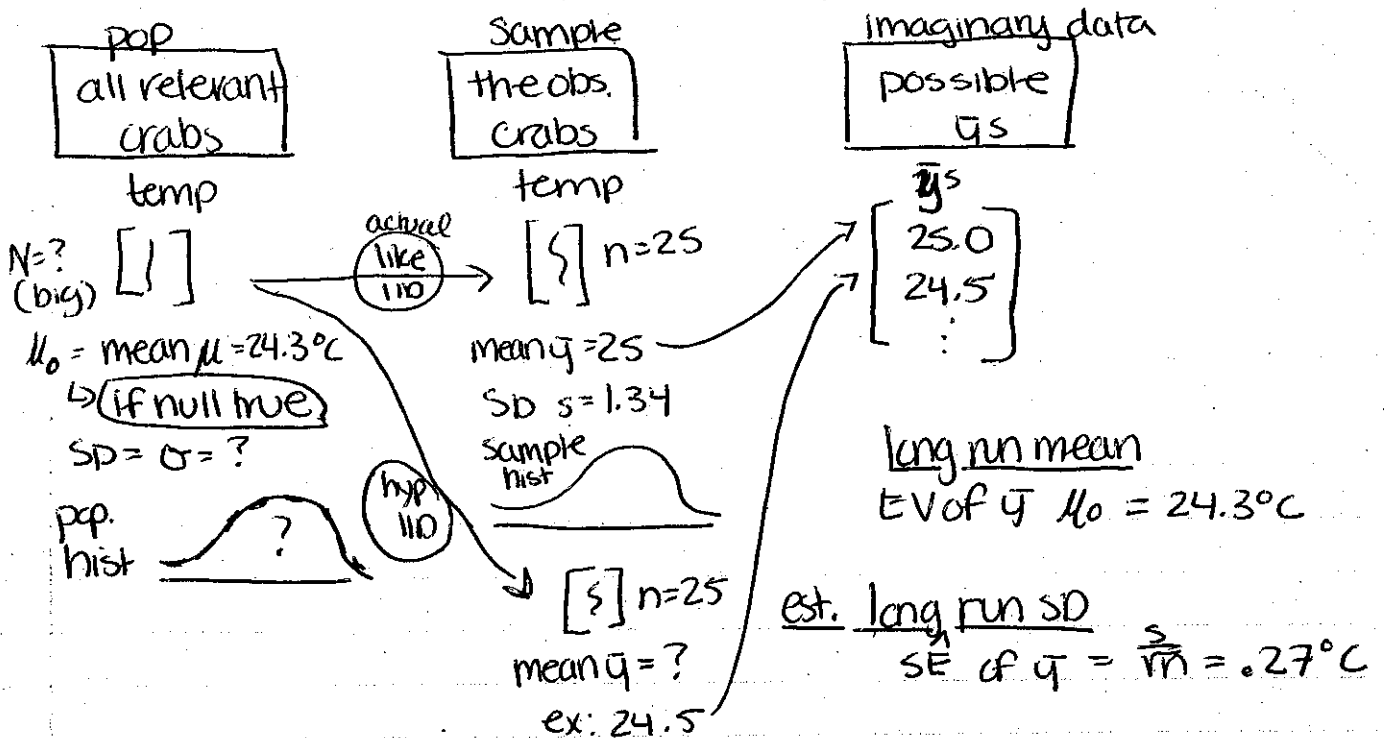 pop
all relevant
crabs
temp
N=?
(big)
μ₀ = mean μ = 24.3°C
↳ if null true
SD = σ = ?
pop.
hist
?
actual
like
IID
hyp
IID
Sample
the obs.
crabs
temp
n=25
mean ȳ = 25
SD s = 1.34
sample
hist
n=25
mean ȳ = ?
ex: 24.5
imaginary data
possible
ȳs
ȳs
25.0
24.5
⋮
long run mean
EV of ȳ μ₀ = 24.3°C
est. long run SD
SÊ of ȳ = s/√n = .27°C